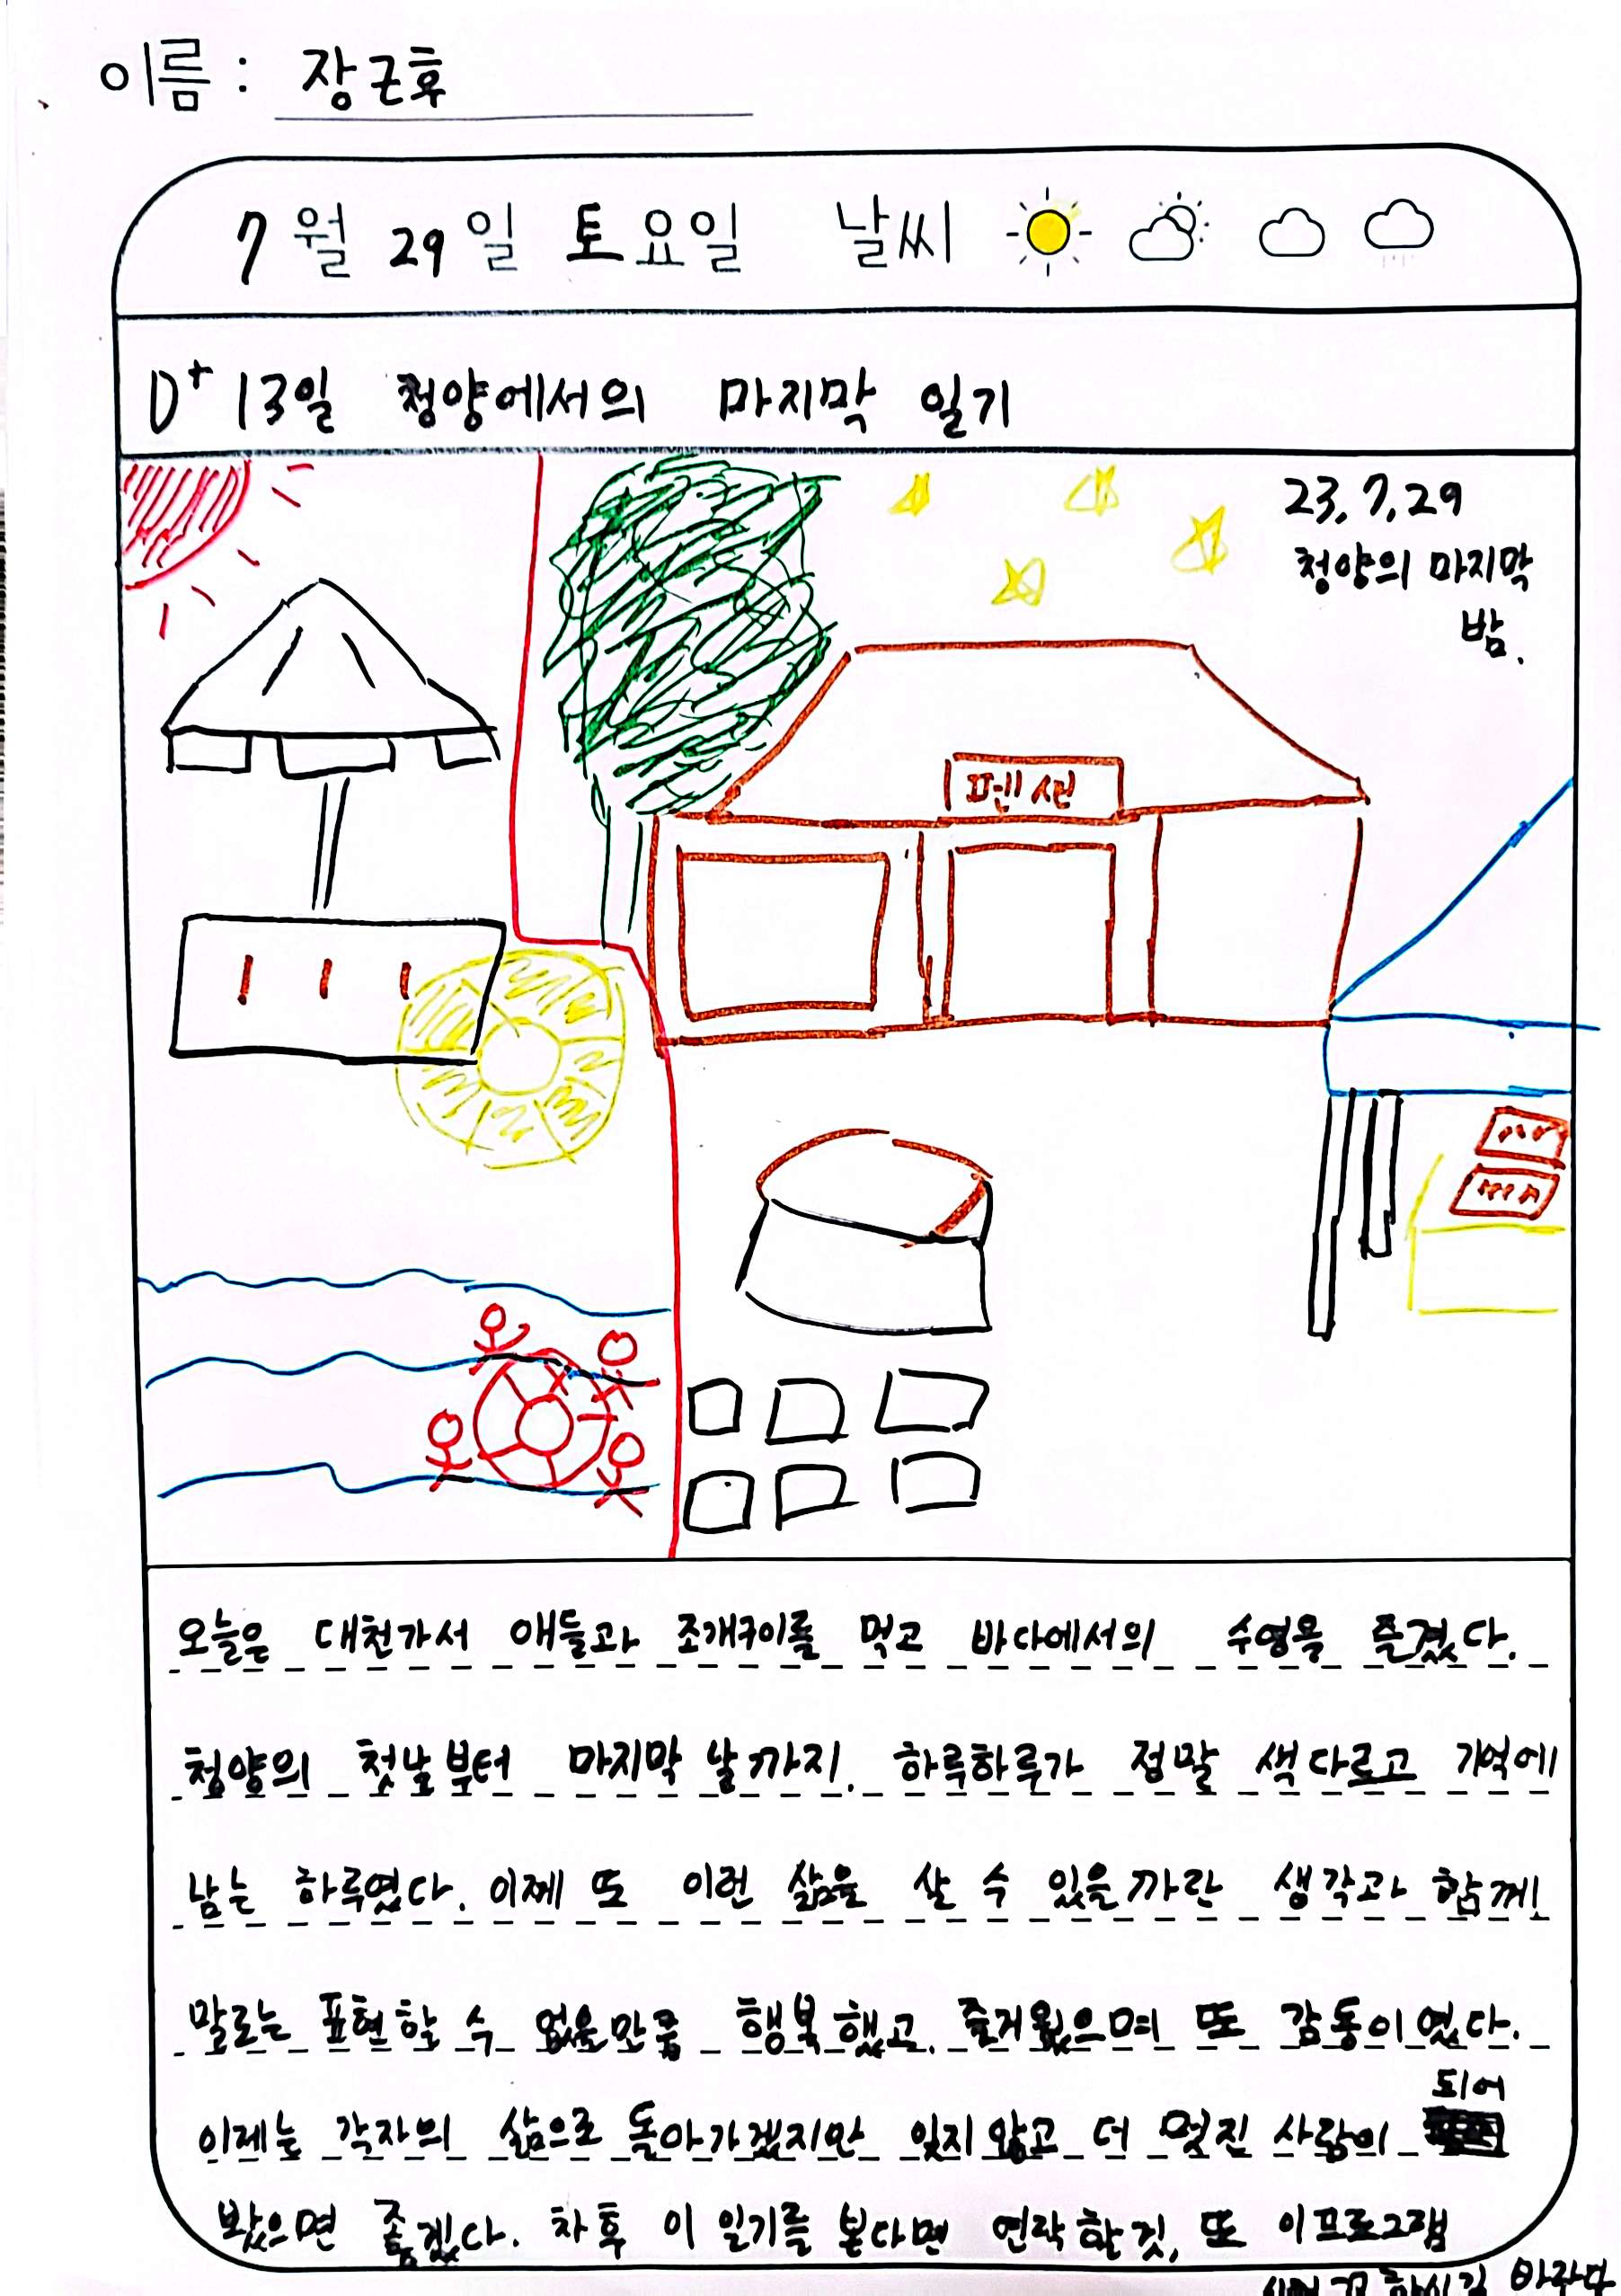 이름 : 장근후
7월 29일 토요일 날씨
D+13일 청양에서의 마지막 일기
23.7.29
청양의 마지막
밤.
펜션
오늘은 대천가서 애들과 조개구이를 먹고 바다에서의 수영을 즐겼다.
청양의 첫날부터 마지막 날까지. 하루하루가 정말 색다르고 기억에
남는 하루였다. 이제 또 이런 삶을 살 수 있을까란 생각과 함께
말로는 표현할 수 없을만큼 행복했고. 즐거웠으며 또 감동이였다.
되어
이제는 각자의 삶으로 돌아가겠지만 잊지않고 더 멋진 사람이
봤으면 좋겠다. 차후 이 일기를 본다면 연락할것, 또 이프로그램
바란다